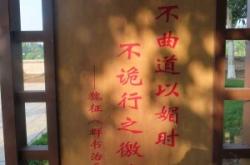 不曲道以媚时
不诡行之徼
——魏征《群书治